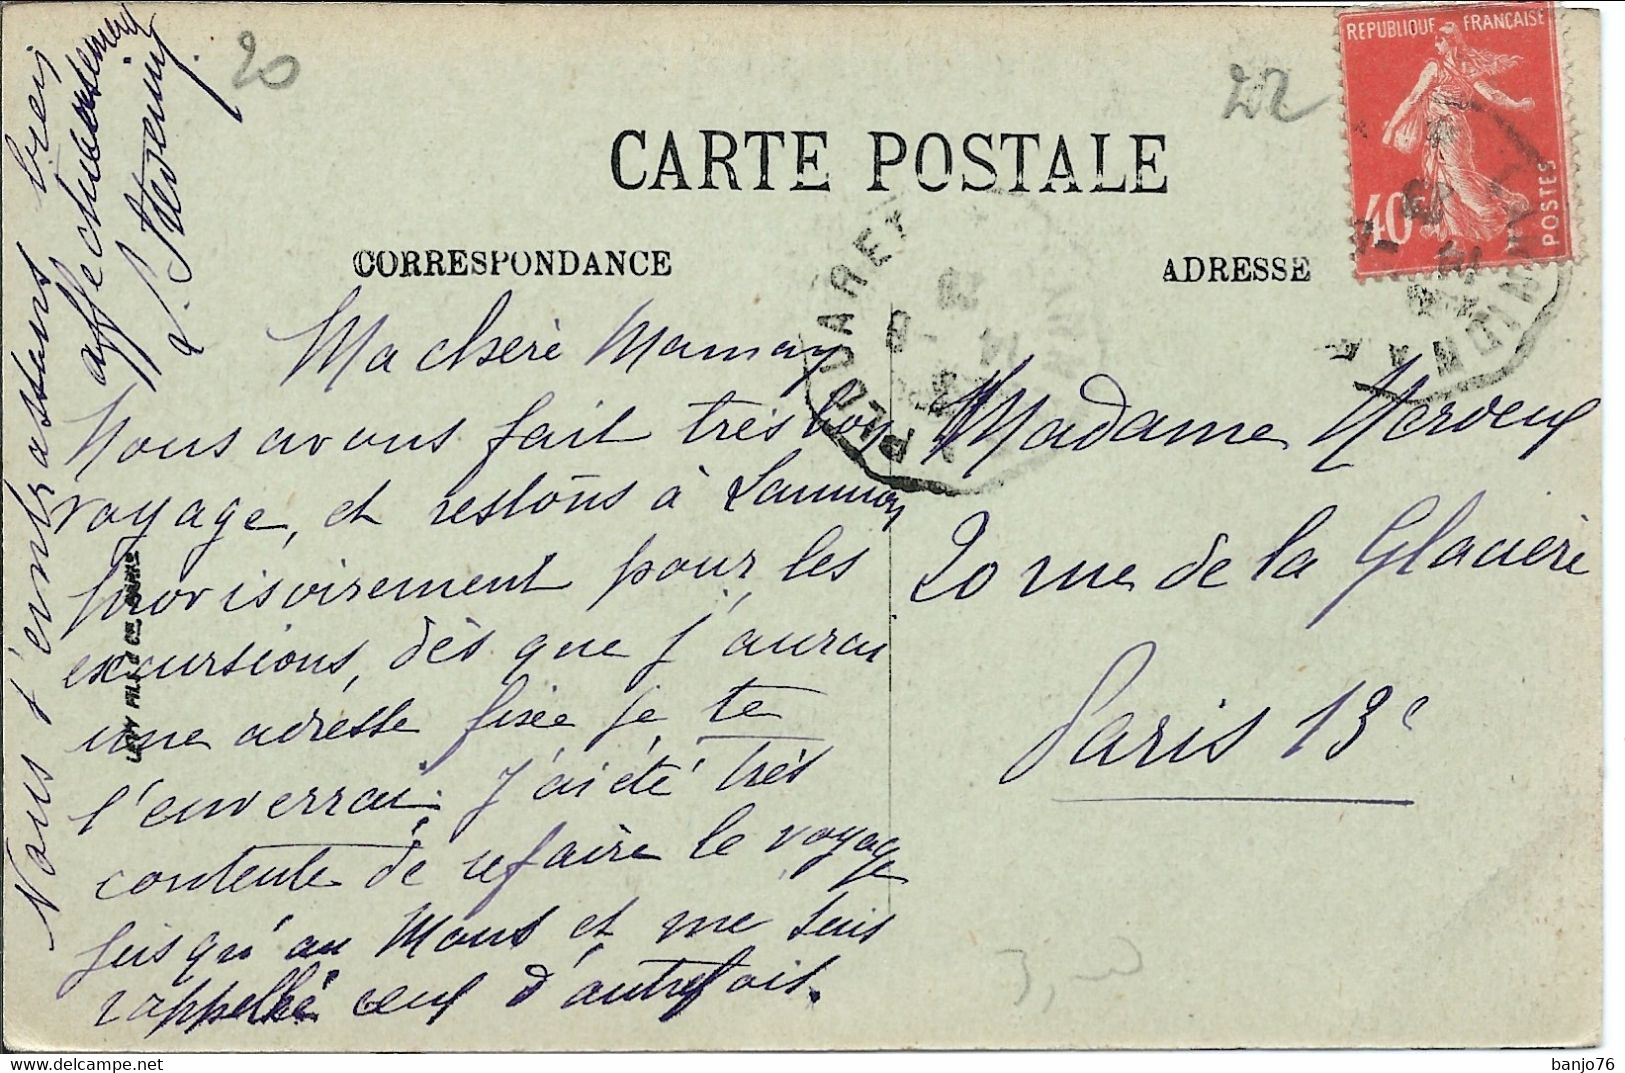 20
22
REPUBLIQUE FRANÇAISE
40c
POSTES
CARTE POSTALE
CORRESPONDANCE
ADRESSE
PLOUARET
LANNION
Ma chère Maman
Nous avons fait très bon
voyage, et restons à Lannion
provisoirement pour les
excursions, dès que j'aurai
une adresse fixée je te
l'enverrai. J'ai été très
contente de refaire le voyage
jusqu'au Mans et me suis
rappellé ceux d'autrefois.
Nous t'embrassons bien
affectueusement
Madame
20 rue de la Glacière
Paris 13e
LEVY FILS & Cie PARIS
delcampe.net
banjo76